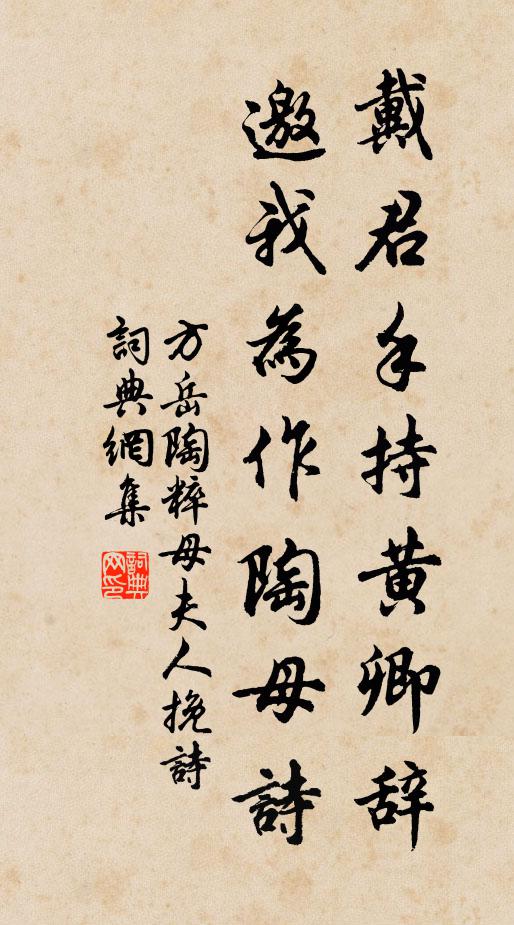 戴君手持黄卿辞
邀我為作陶母詩
方岳陶粹母夫人挽詩
詞典網集
詞典网印